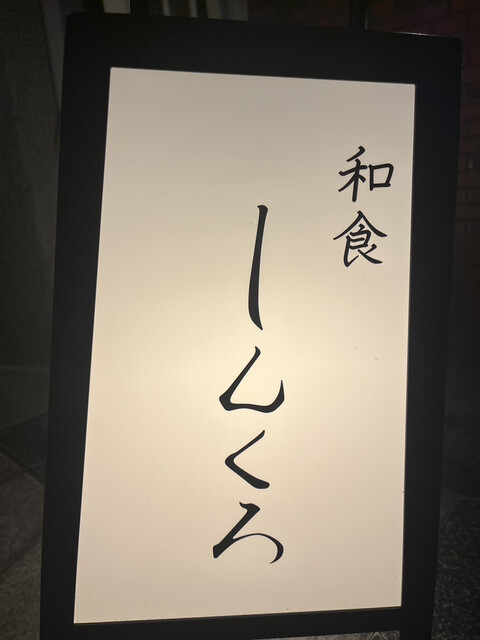 和食
しんくろ